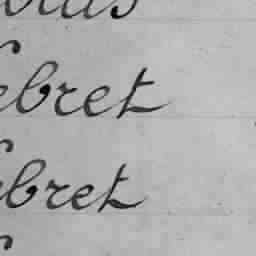 ebret
ebret